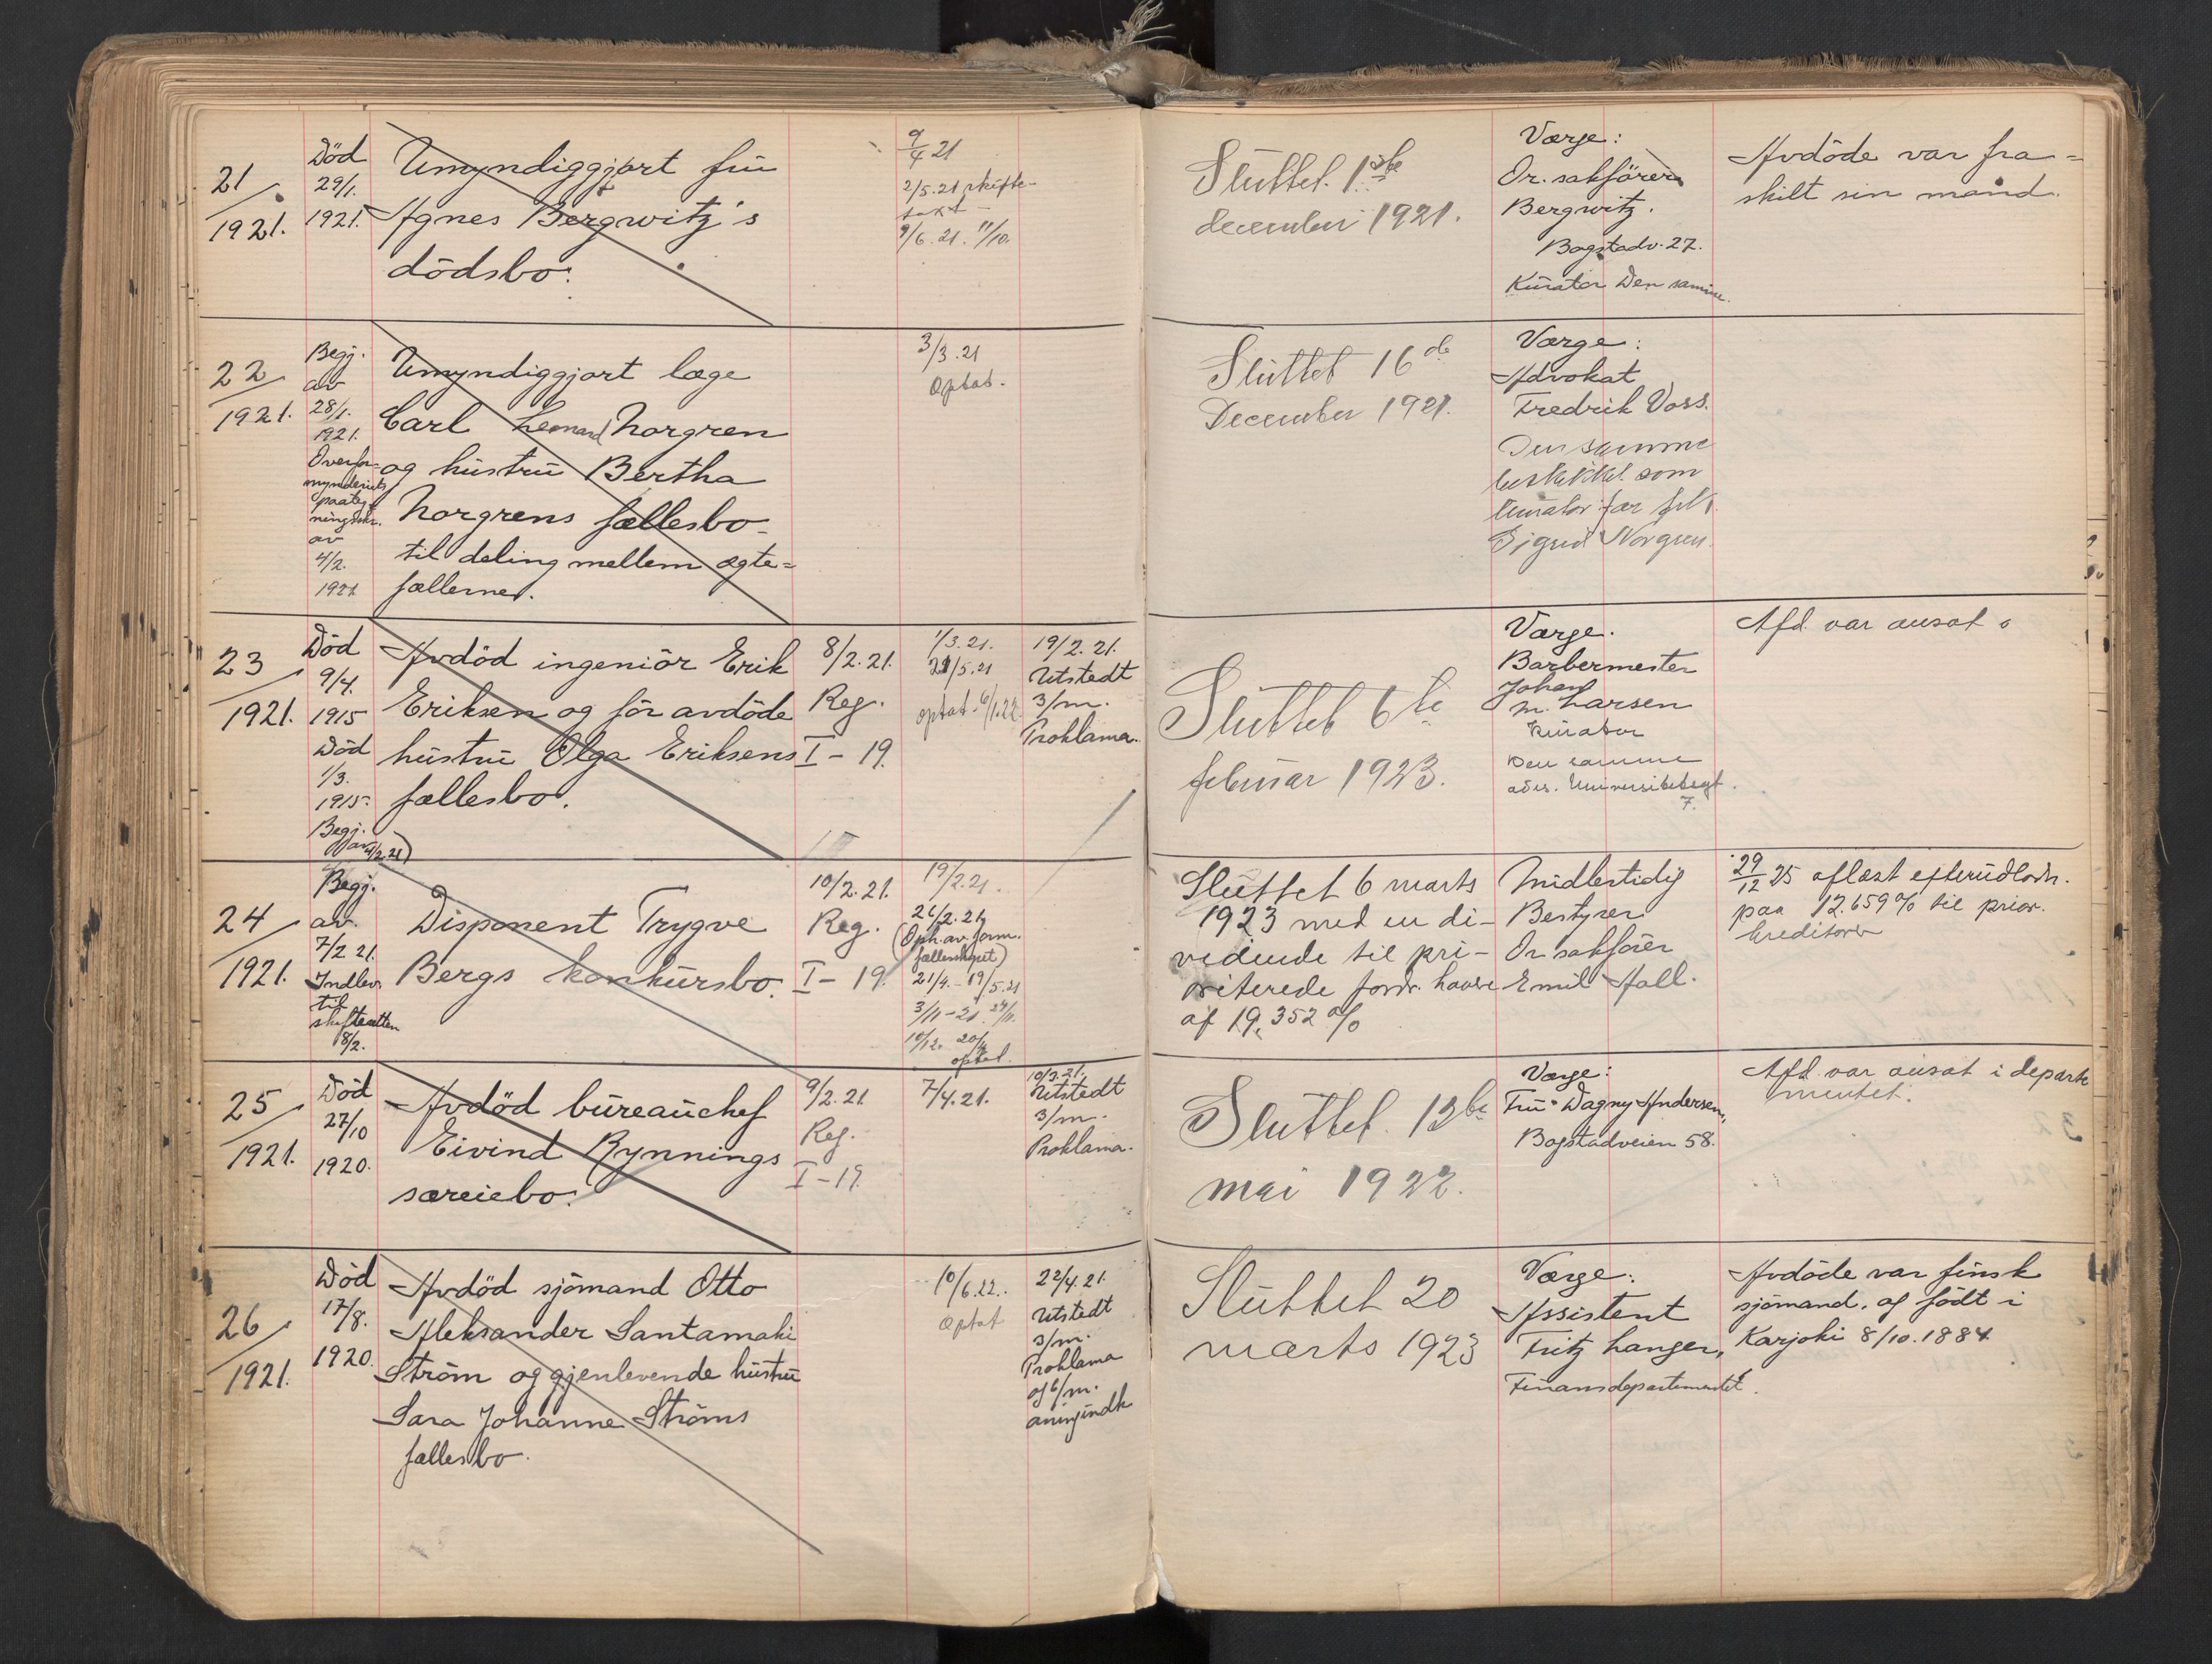 21/1921.
Död
29/1.
1921.
Umyndiggjort frü
Agnes Bergwitz's
dödsbo.
9/4 21
2/5.21 skifte-
9/6.21. 11/10.
Sluttet. 1ste
december 1921.
Værge:
Or. sakförer
Bergwitz.
Bogstadv. 27.
Kürator Den samme.
Avdöde var fra=
skilt sin mand.
22/1921.
Begj.
av
28/1.
1921.
Overfor=
mynderiets
paateg=
ningsskr.
av
4/2.
1921
Umyndiggjort læge
Carl Leonard Norgren
og hüstrü Bertha
Norgrens fællesbo-
til deling mellem ægte=
fællerne.
3/3.21
Optat.
Sluttet 16de
December 1921.
Værge:
Advokat
Fredrik Voss.
Den samme
beskikket som
kurator for frk.
Sigrid Norgren.
23/1921.
Död
9/4.
1915
Död
1/3.
1915.
Begj.
av 4/2.21)
Avdöd ingeniör Erik
Eriksen og för avdöde
hüstrü Olga Eriksens
fællesbo.
8/2.21.
Reg.
I-19.
1/3.21.
21/5.21
optat. 6/1.22.
19/2.21.
Utstedt
3/m.
Proklama.
Slüttet 6te
februar 1923.
Værge.
Barbermester
Johan
M. Larsen
Kürator
Den samme
adrs. Universitetsgt.
7.
Afd. var ansat
24/1921.
Begj.
av.
7/2 21.
Indlev.
til
skifteretten
8/2.
Disponent Trygve
Bergs konkürsbo.
10/2.21.
Reg.
I-19.
19/2.21.
26/2.21,
(Oph. av form.
fællesskapet)
21/4. - 19/5.21
3/11-21. 24/11.
10/12. 20/12
optat.
Slüttet 6 marts
1923 med en di-
vidende til pri-
oriterede fordr. havere
af 19,352 %
Midlertidig
Bestyrer
Or sakförer
Emil Hall.
29/12 25 aflæst efterüdlodn.
paa 12.659% til prior.
kreditorer
25/1921.
Död
27/10
1920.
Avdöd büreaüchef
Eivind Rynnings
særeiebo.
9/2.21
Reg.
I-19.
7/4.21.
10/3.21.
Utstedt
3/m.
Proklama.
Sluttet. 13de
mai 1922.
Værge:
Frü Dagny Andersen,
Bogstadveien 58.
Afd. var ansat i departe
mentet.
26/1921.
Död
17/8.
1920.
Avdöd sjömand Otto
Aleksander Santamaki
Ström og gjenlevende hüstrü
Sara Johanne Ströms
fællesbo.
10/6.22.
Optat
22/4.21.
Utstedt
3/m.
Proklama
og 6/m.
Slüttet 20
marts 1923
Værge:
Assistent
Fritz Langer,
Finansdepartementet.
Avdöde var finsk
sjömand, og födt i
Karjoki 8/10.1884